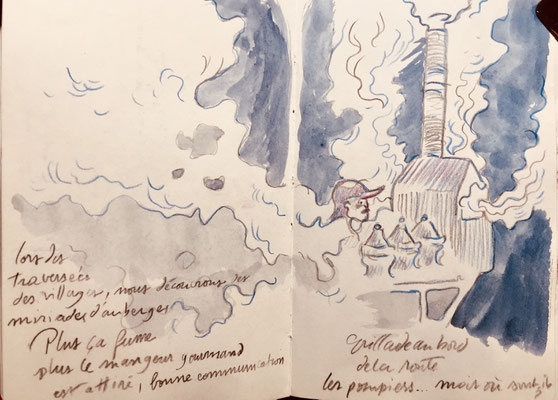 lors des
traversées
des villages, nous découvrons des
miriades d'auberges
Plus ça fume
plus le mangeur gourmand
est attiré, bonne communication
grillade au bord
de la route
les pompiers... mais où sont-ils